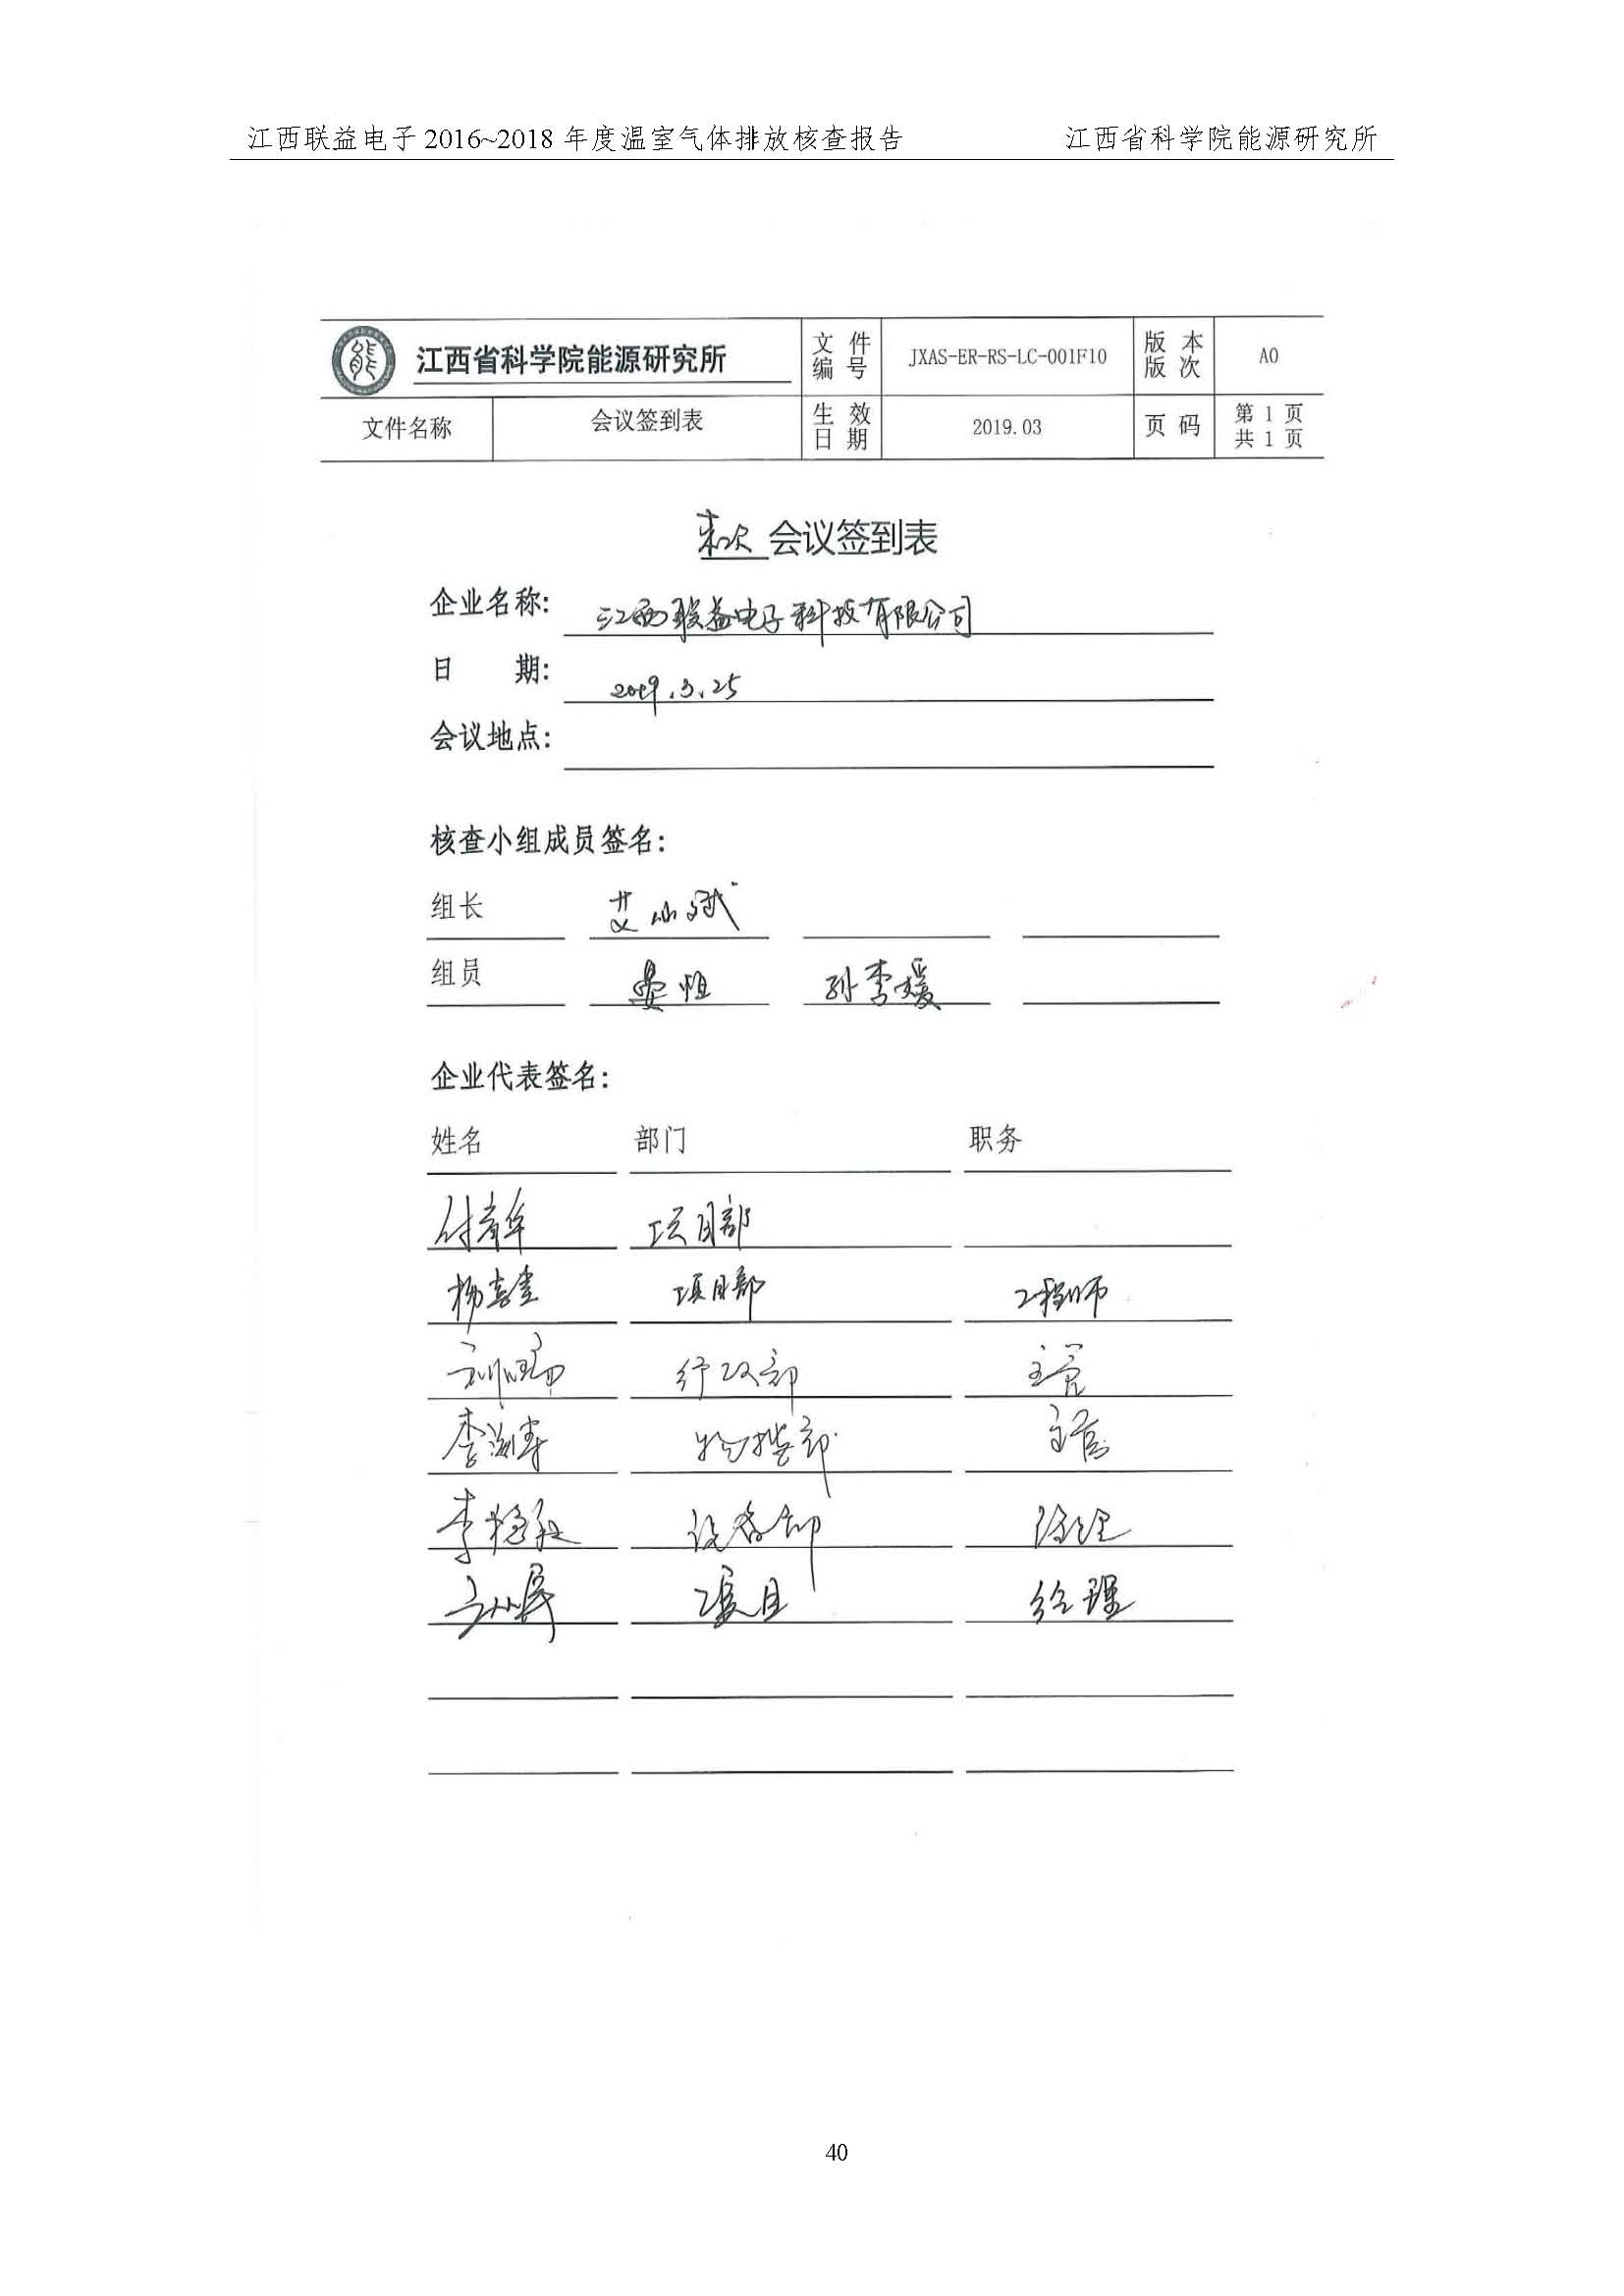 江西联益电子 2016~2018 年度温室气体排放核查报告 江西省科学院能源研究所
江西省科学院能源研究所 文件编号 JXAS-ER-RS-LC-001F10 版本版次 A0
文件名称 会议签到表 生效日期 2019.03 页码 第 1 页 共 1 页
末次 会议签到表
企业名称: 江西联益电子科技有限公司
日 期: 2019.3.25
会议地点:
核查小组成员签名:
组长 艾仙斌
组员 晏恒 孙李媛
企业代表签名:
姓名 部门 职务
项目部
项目部 工程师
行政部 主管
李海涛 主管
设备部 经理
项目 经理
40